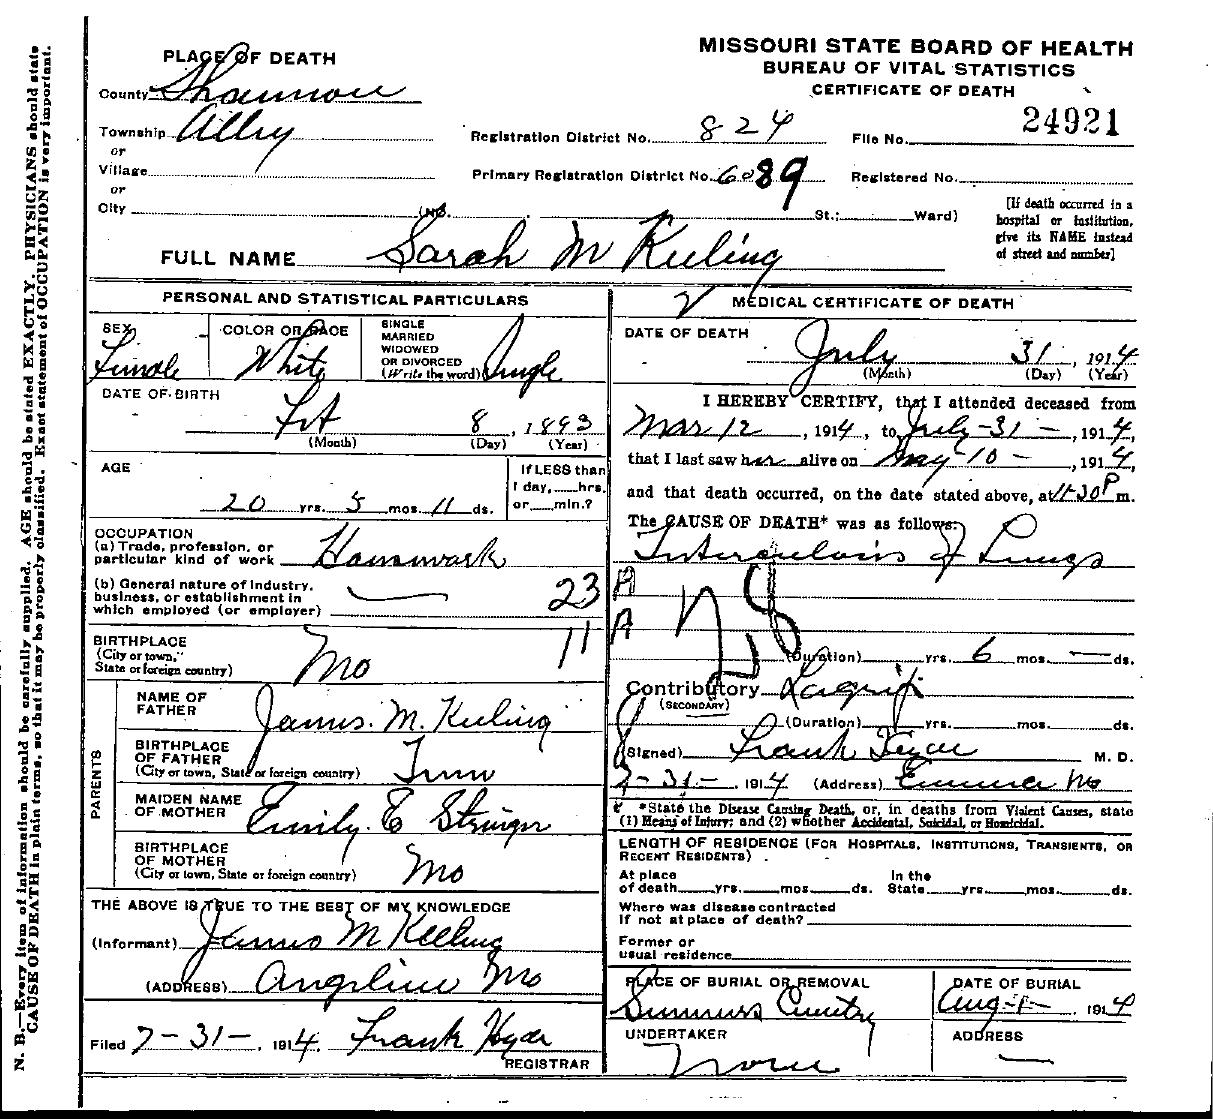 MISSOURI STATE BOARD OF HEALTH
BUREAU OF VITAL STATISTICS
CERTIFICATE OF DEATH
PLACE OF DEATH
County Shannon
Township Alley
or
Village
or
City (No. St.; Ward)
Registration District No. 824
File No. 24921
Primary Registration District No. 6089
Registered No.
[If death occurred in a
hospital or institution,
give its NAME instead
of street and number]
FULL NAME Sarah M Keeling
PERSONAL AND STATISTICAL PARTICULARS
SEX
Female
COLOR OR RACE
White
SINGLE
MARRIED
WIDOWED
OR DIVORCED
(Write the word) Single
DATE OF BIRTH
Feb 8, 1893
(Month) (Day) (Year)
AGE
20 yrs. 5 mos. 11 ds.
If LESS than
1 day, hrs.
or min.?
OCCUPATION
(a) Trade, profession, or
particular kind of work Housework
(b) General nature of industry,
business, or establishment in
which employed (or employer)
23
11
BIRTHPLACE
(City or town,
State or foreign country) Mo
PARENTS
NAME OF
FATHER James. M. Keeling
BIRTHPLACE
OF FATHER
(City or town, State or foreign country) Tenn
MAIDEN NAME
OF MOTHER Emily. E Stringer
BIRTHPLACE
OF MOTHER
(City or town, State or foreign country) Mo
THE ABOVE IS TRUE TO THE BEST OF MY KNOWLEDGE
(Informant) James M Keeling
(ADDRESS) Angeline Mo
Filed 7-31-, 1914. Frank Hyde
REGISTRAR
MEDICAL CERTIFICATE OF DEATH
DATE OF DEATH
July 31, 1914
(Month) (Day) (Year)
I HEREBY CERTIFY, that I attended deceased from
Mar 12, 1914, to July-31-, 1914,
that I last saw her alive on May-10-, 1914,
and that death occurred, on the date stated above, at 11-30 P m.
The CAUSE OF DEATH* was as follows:
Tuberculosis of Lungs
A
A
28
(Duration) yrs. 6 mos. — ds.
Contributory Lagrip
(SECONDARY)
(Duration) yrs. mos. ds.
(Signed) Frank Hyde M. D.
7-31-, 1914 (Address) Eminence Mo
*State the Disease Causing Death, or, in deaths from Violent Causes, state
(1) Means of Injury; and (2) whether Accidental, Suicidal, or Homicidal.
LENGTH OF RESIDENCE (FOR HOSPITALS, INSTITUTIONS, TRANSIENTS, OR
RECENT RESIDENTS)
At place
of death yrs. mos. ds.
In the
State yrs. mos. ds.
Where was disease contracted
If not at place of death?
Former or
usual residence
PLACE OF BURIAL OR REMOVAL
Summers Cemetry
DATE OF BURIAL
Aug-1-, 1914
UNDERTAKER
None
ADDRESS
—
N. B.—Every item of information should be carefully supplied. AGE should be stated EXACTLY. PHYSICIANS should state
CAUSE OF DEATH in plain terms, so that it may be properly classified. Exact statement of OCCUPATION is very important.